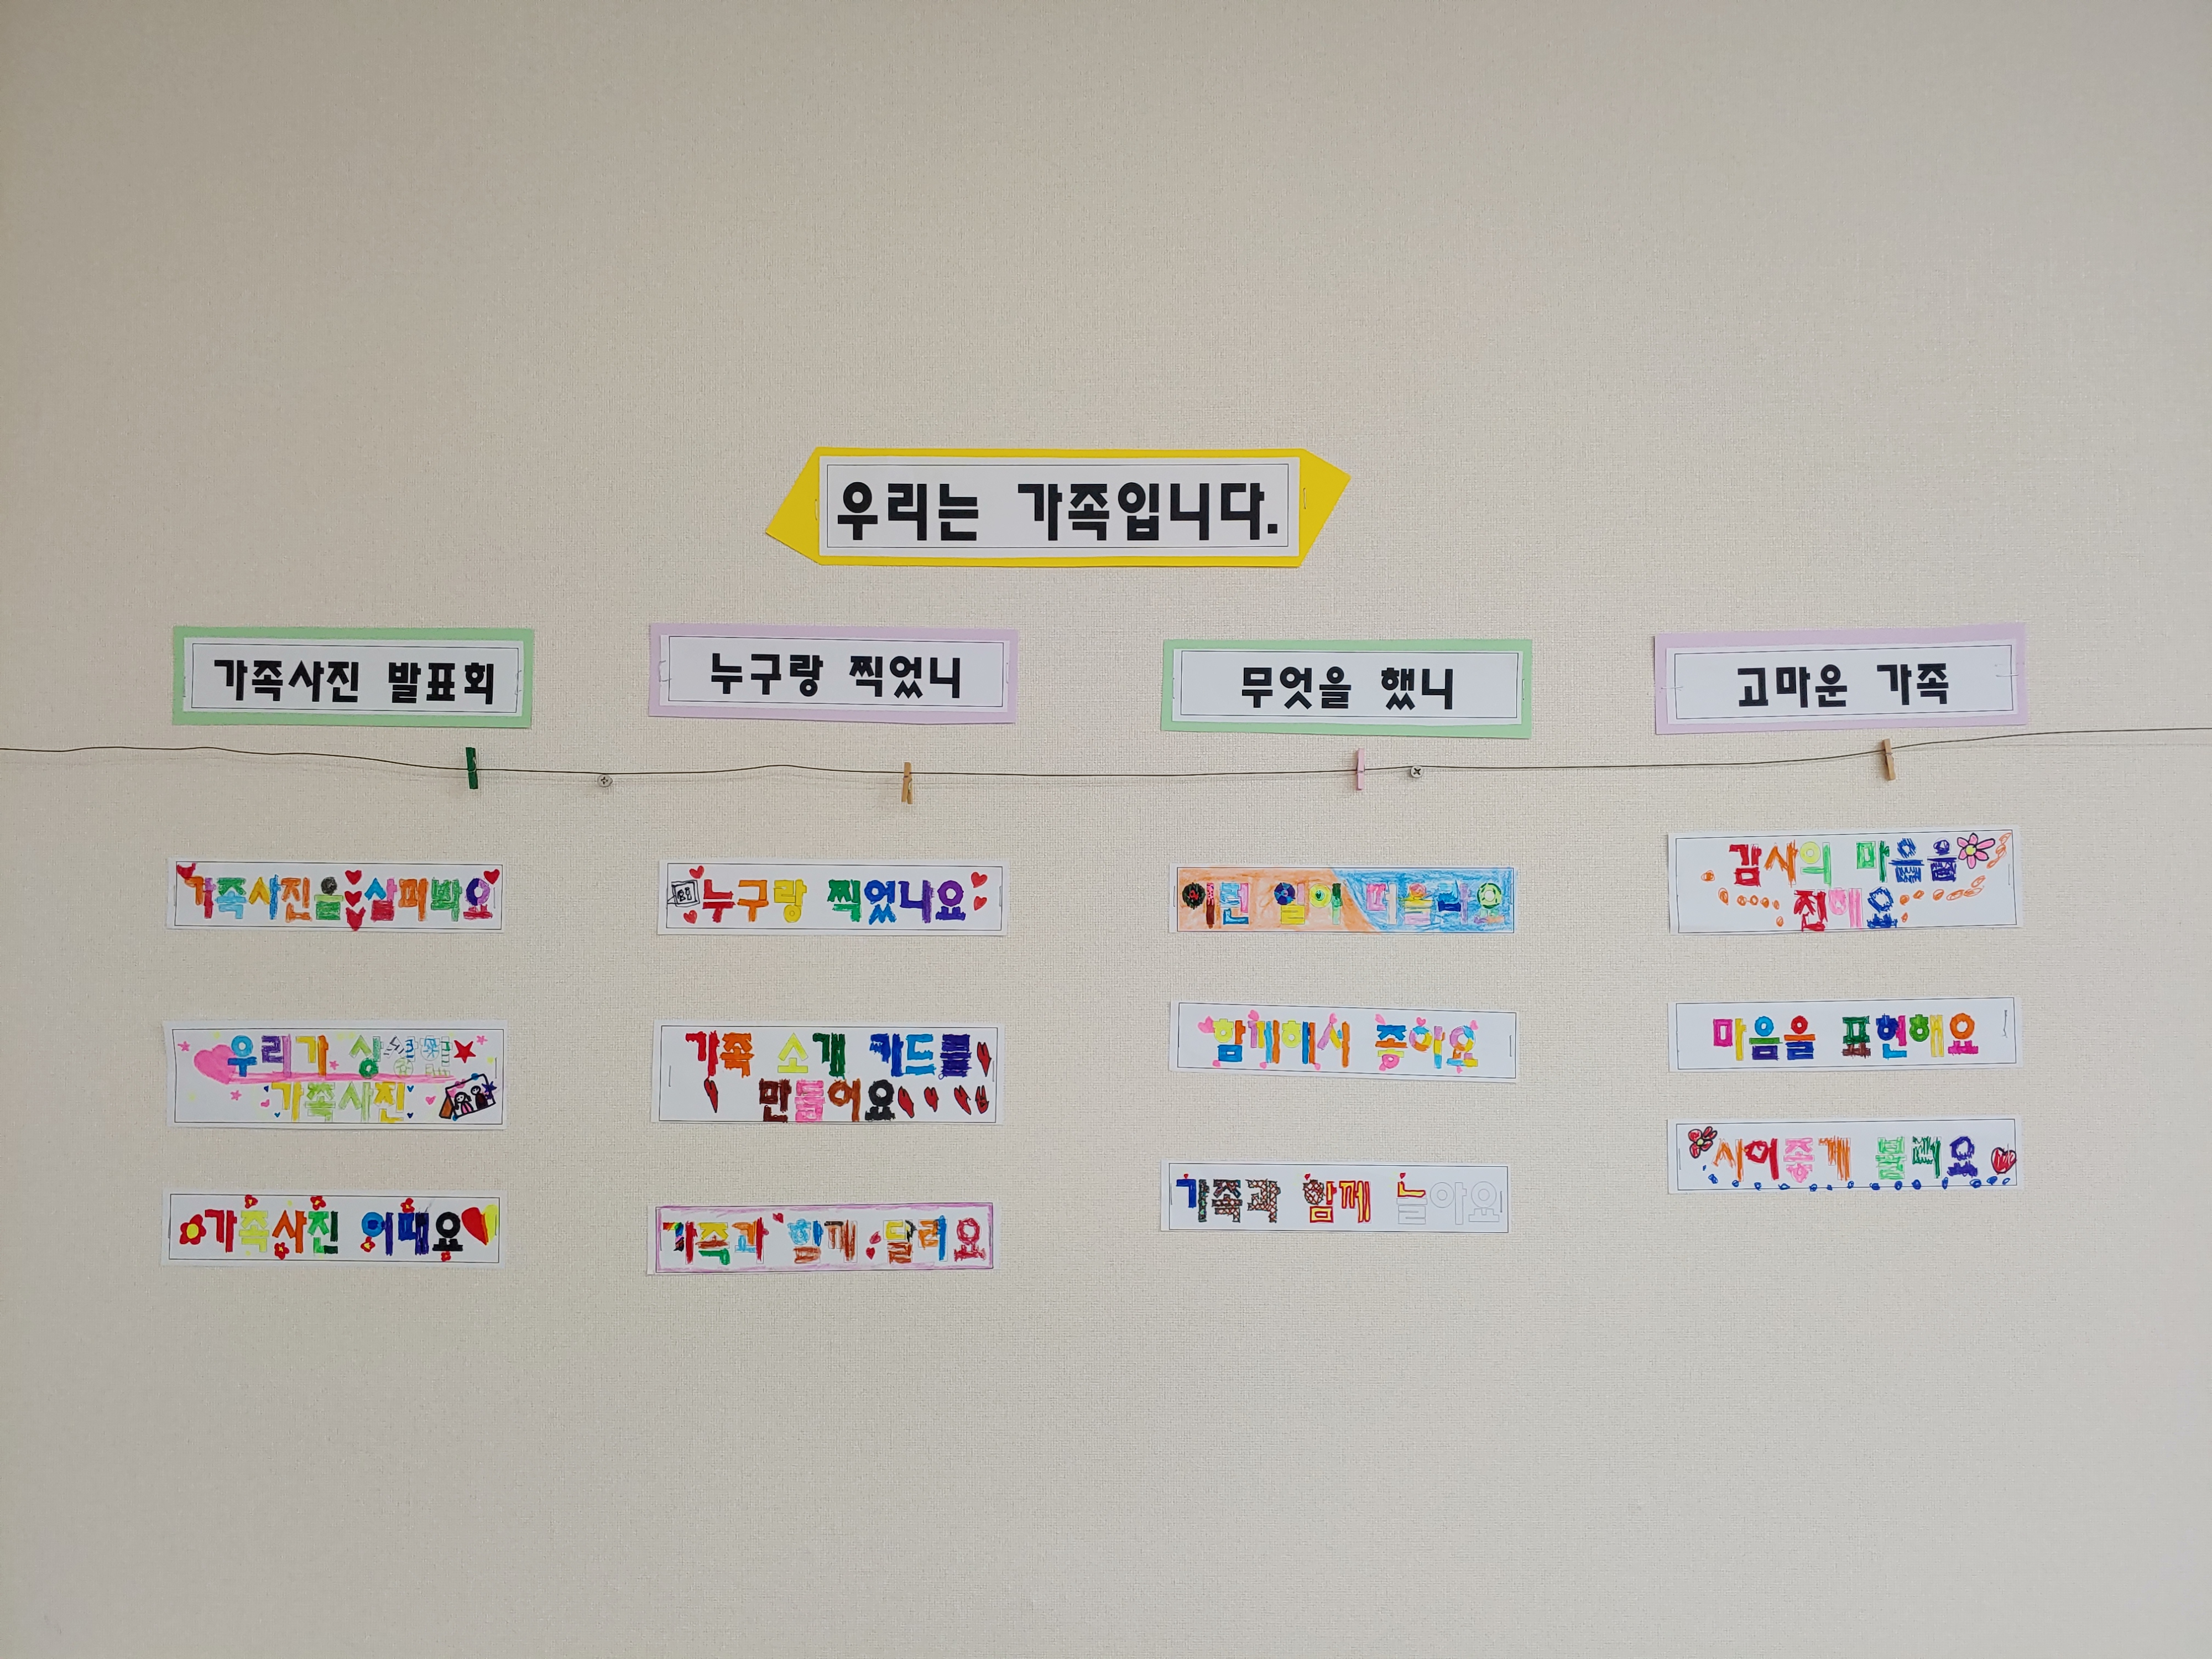 우리는 가족입니다.
가족사진 발표회
가족사진을 살펴봐요
우리가 상상한
가족사진
가족사진 어때요
누구랑 찍었니
누구랑 찍었나요
가족 소개 카드를
만들어요
가족과 함께 달려요
무엇을 했니
이런 일이 떠올라요
함께해서 좋아요
가족과 함께 놀아요
고마운 가족
감사의 마음을
전해요
마음을 표현해요
시어 존중
마음을 표현해요